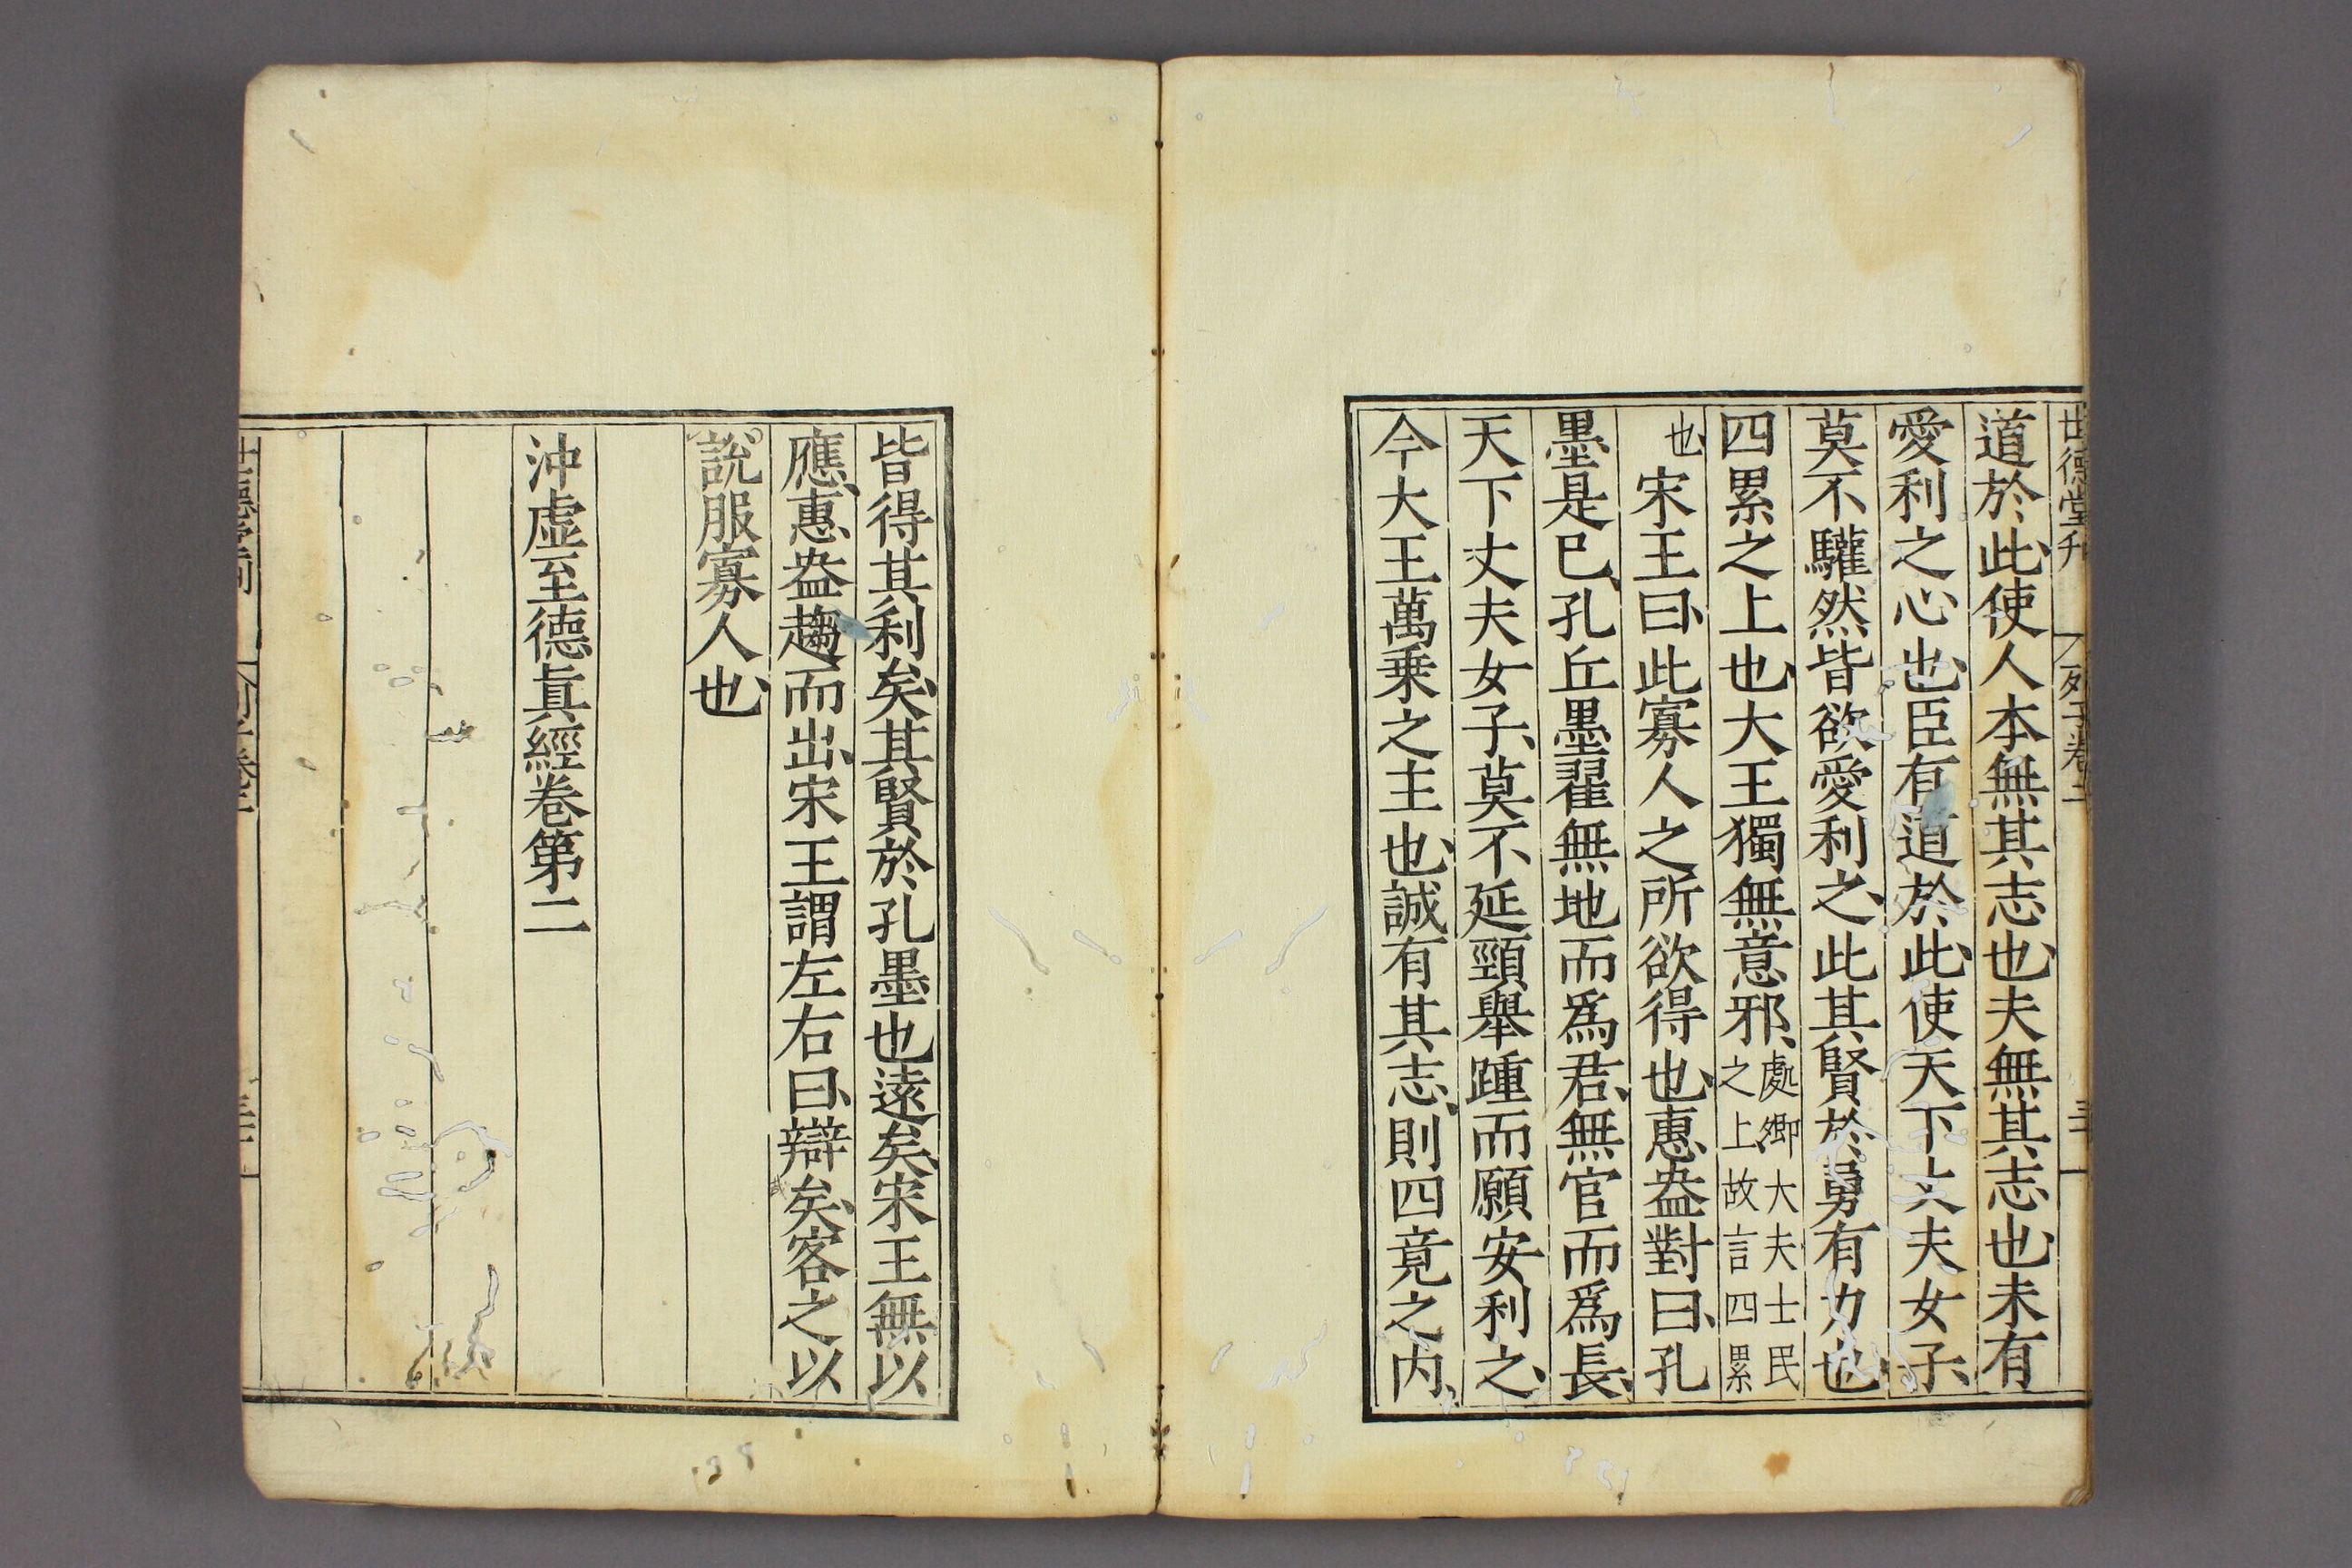 世德堂刊 列子卷二 三十
道於此使人本無其志也夫無其志也未有
愛利之心也臣有道於此使天下丈夫女子
莫不驩然皆欲愛利之此其賢於勇有力也
四累之上也大王獨無意邪處卿大夫士民
之上故言四累
也宋王曰此寡人之所欲得也惠盎對曰孔
墨是已孔丘墨翟無地而為君無官而為長
天下丈夫女子莫不延頸舉踵而願安利之
今大王萬乗之主也誠有其志則四竟之内
皆得其利矣其賢於孔墨也遠矣宋王無以
應惠盎趨而出宋王謂左右曰辯矣客之以
說服寡人也
沖虛至德眞經卷第二